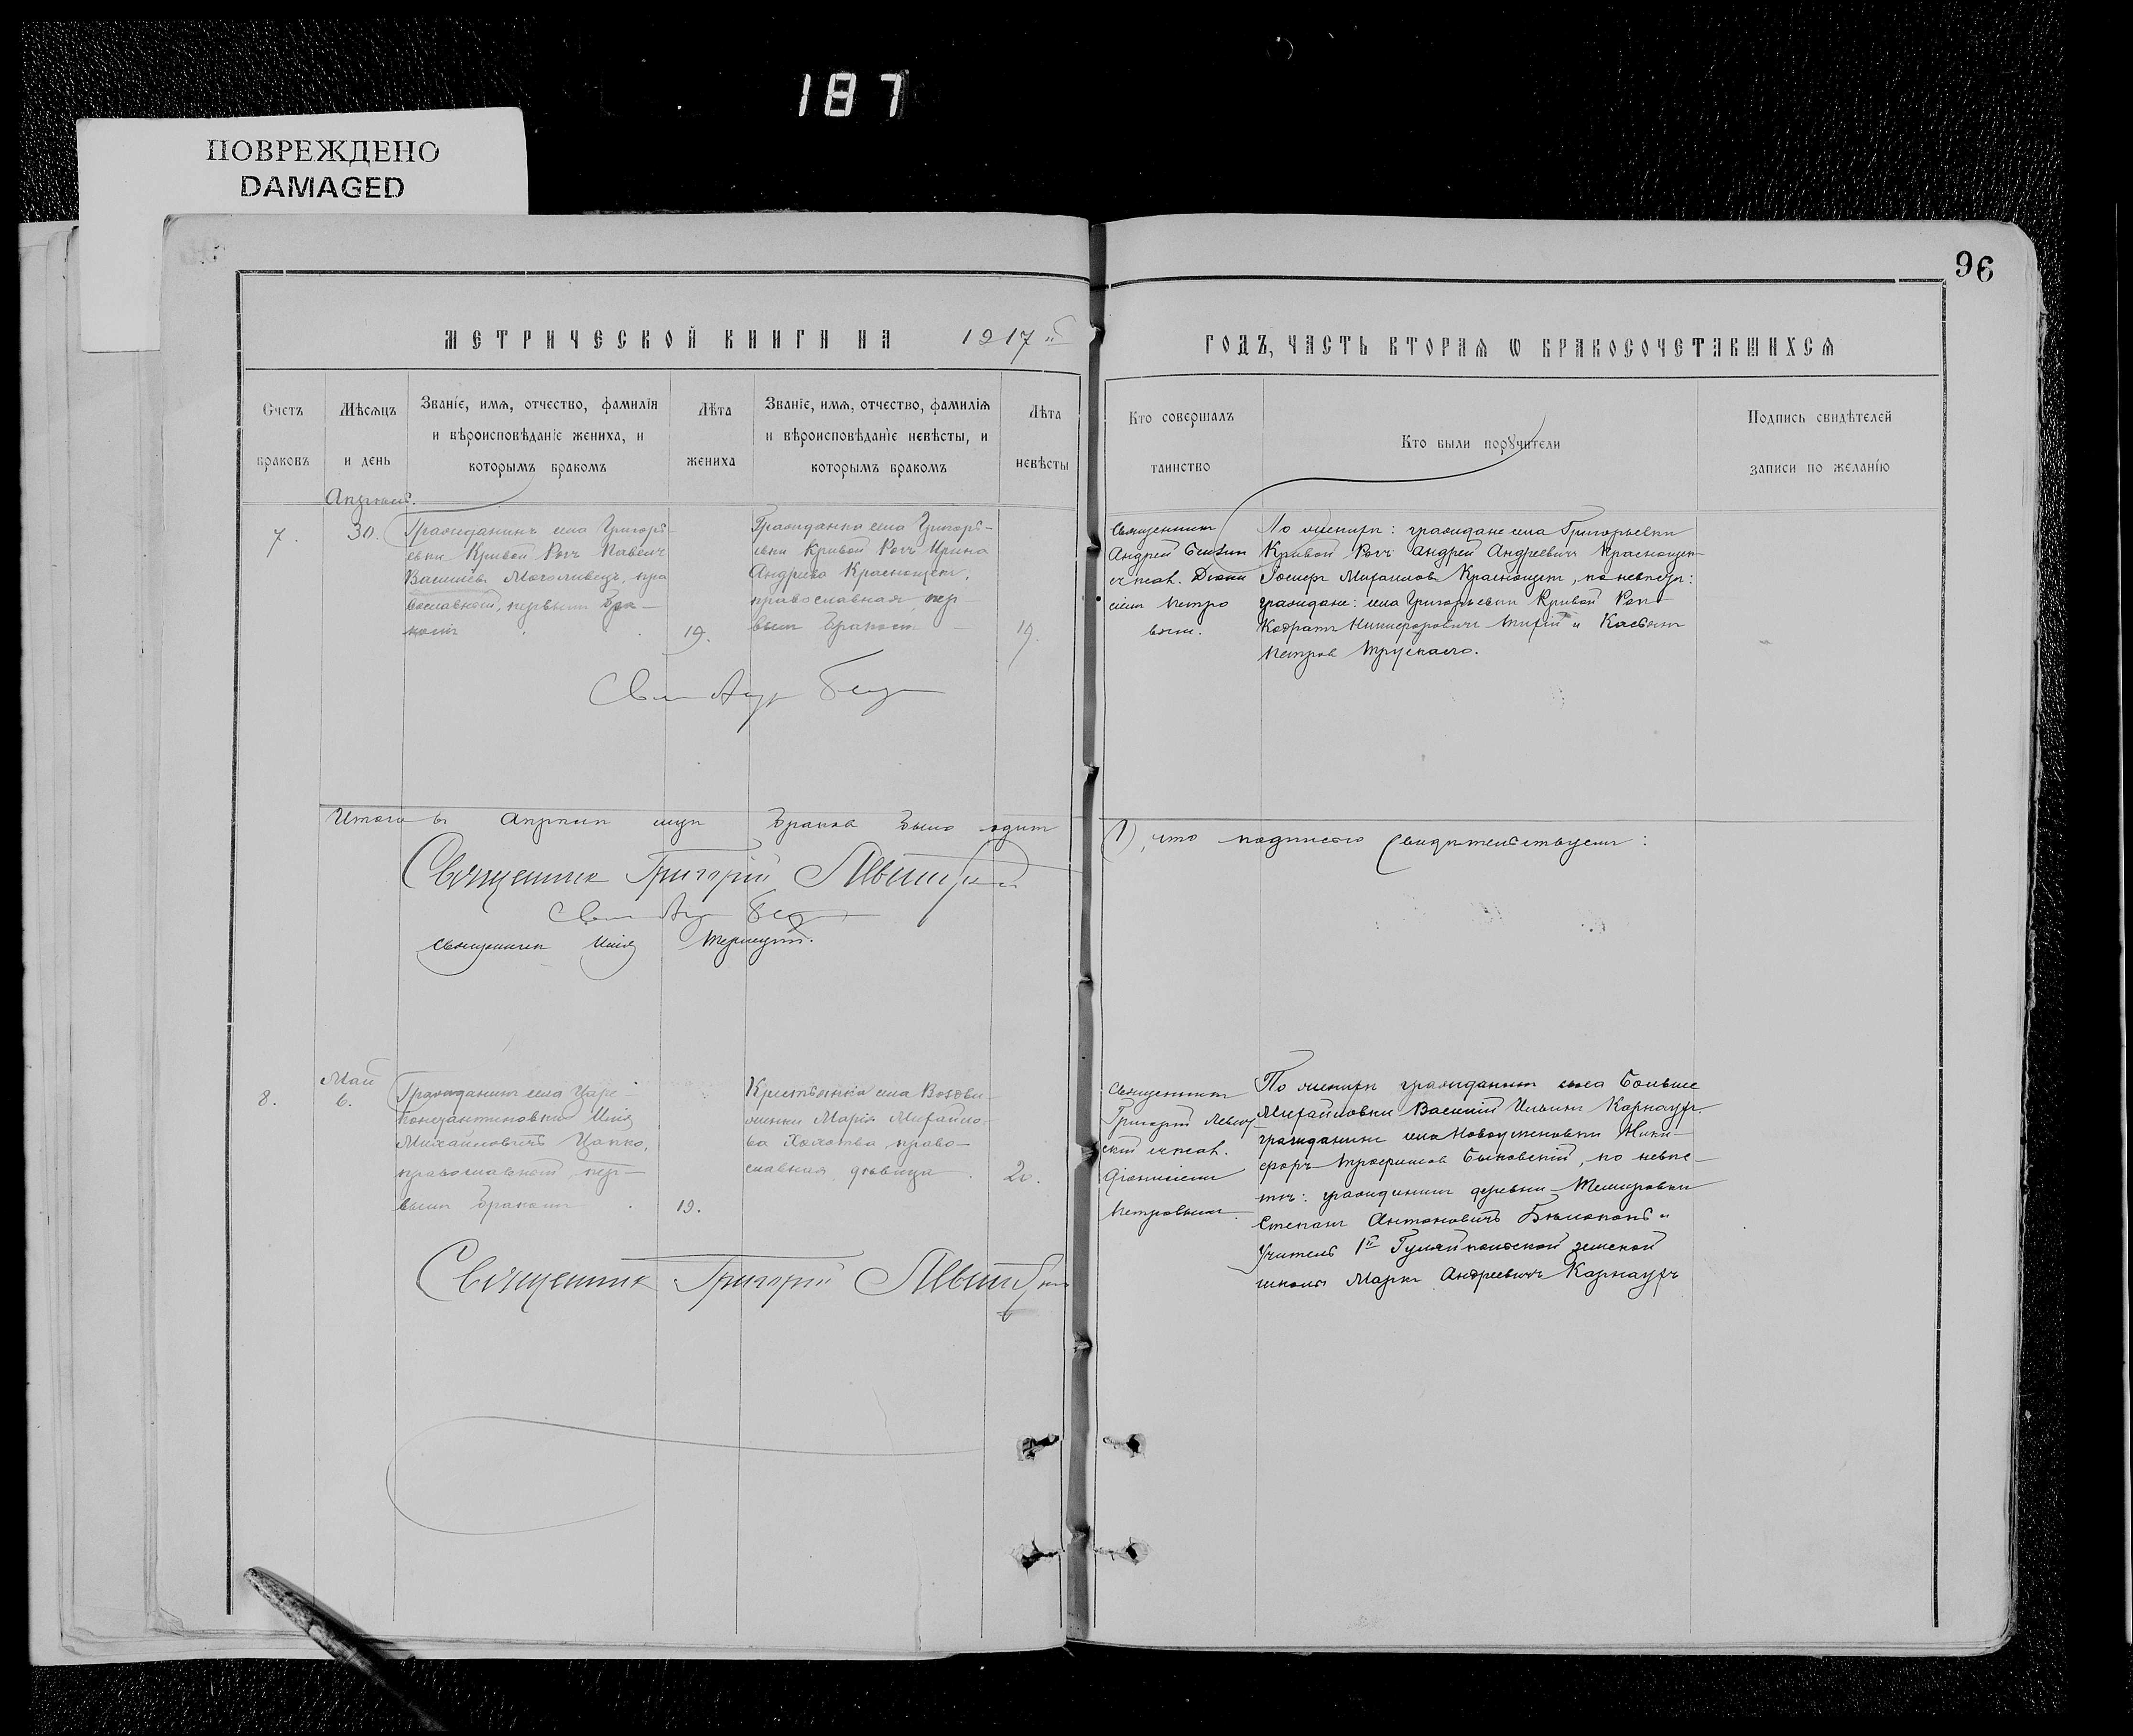 187
ПОВРЕЖДЕНО
DAMAGED
96
МЕТРИЧЕСКОЙ КНИГИ НА 1917 й
ГОДЪ, ЧАСТЬ ВТОРАЯ Ѡ БРАКОСОЧЕТАВШИХСЯ
Счетъ
браковъ
Мѣсяцъ
и день
Званіе, имя, отчество, фамилія
и вѣроисповѣданіе жениха, и
которымъ бракомъ
Лѣта
жениха
Званіе, имя, отчество, фамилія
и вѣроисповѣданіе невѣсты, и
которымъ бракомъ
Лѣта
невѣсты
Кто совершалъ
таинство
Кто были поручители
Подпись свидѣтелей
записи по желанію
7.
30.
Гражданинъ села Григорь-
евки Кривой Рогъ Павелъ
пра
вославный, первымъ бра-
комъ
19.
Гражданка села Григорь-
евки Кривой Рогъ Ирина
Андреева Краснощек,
православная, пер-
вымъ бракомъ
19.
Священникъ
Андрей
Діони
сіемъ Петро
вымъ.
По женихѣ: граждане села Григорьевки
Кривой Рогъ Андрей Андреевичъ Краснощек
Михаилов Краснощек, по невѣстѣ:
граждане: села Григорьевки Кривой Рог
Кодратъ Никифоровичъ и
Петров
Итого въ Апрѣлѣ мцѣ браков было один
(1), что подписью свидѣтельствуем:
Священник Григорій
Священникъ Илія
8.
Май
6.
Гражданинъ села Царе-
константиновки Илія
Михайловичъ Цапко,
православный, пер-
вымъ бракомъ
19.
Крестьянка села Воздви-
женки Марія Михайло-
ва право-
славная, дѣвица
20.
Священникъ
Григорій
скій
Діонисіемъ
Петровымъ.
По женихѣ гражданинъ села Больше
Михайловки Василій Ильинъ Карнаухъ.
гражданинъ села Новоуспеновки Ники-
форъ Трофимов Быковскій, по невѣс-
тѣ: гражданинъ деревни Темировки
Степанъ Антоновичъ и
Учитель 1й Гуляйпольской земской
школы Маркъ Андреевичъ Карнаухъ
Священник Григорій